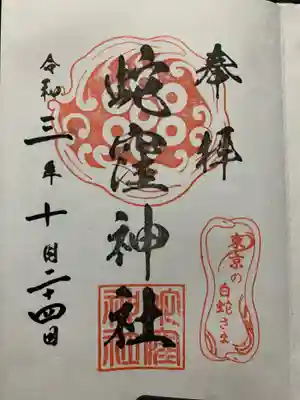 奉拝
蛇窪神社
東京の
白蛇さま
令和三年十月二十四日